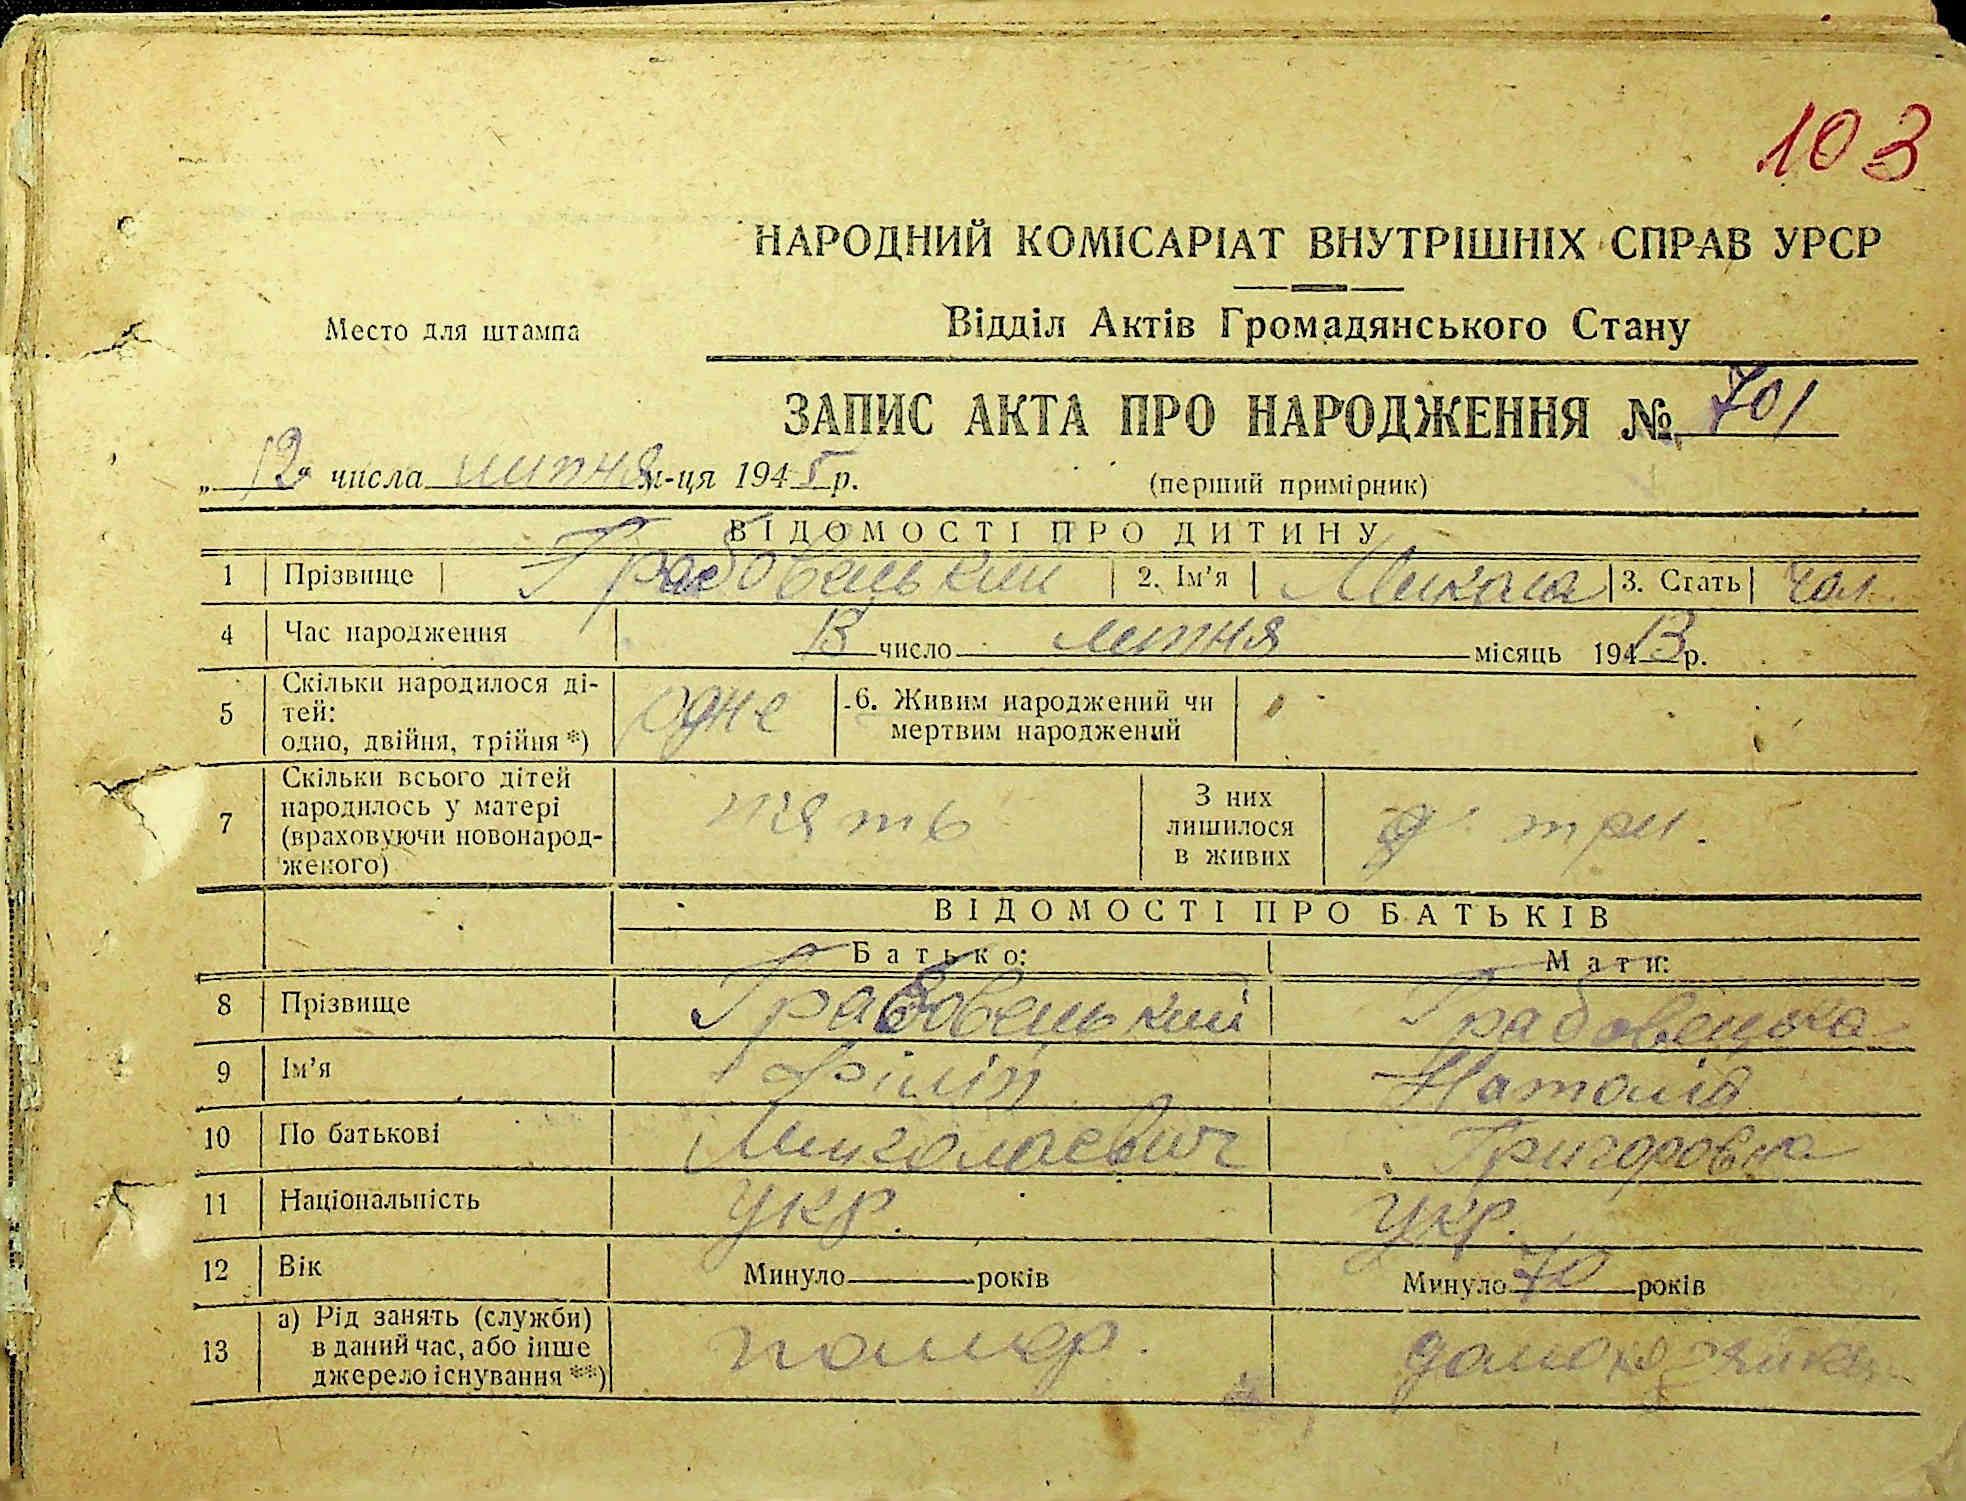 103
НАРОДНИЙ КОМІСАРІАТ ВНУТРІШНІХ СПРАВ УРСР
Место для штампа
Відділ Актів Громадянського Стану
ЗАПИС АКТА ПРО НАРОДЖЕННЯ № 701
„12“ числа липня м-ця 1945 р. (перший примірник)
ВІДОМОСТІ ПРО ДИТИНУ
1 Прізвище Грабовецький 2. Ім'я Микола 3. Стать чол.
4 Час народження 13 число липня місяць 194 р.
5 Скільки народилося ді-
тей:
одно, двійня, трійня *) одне 6. Живим народжений чи
мертвим народжений
7 Скільки всього дітей
народилось у матері
(враховуючи новонарод-
женого) пять З них
лишилося
в живих три.
ВІДОМОСТІ ПРО БАТЬКІВ
Батько: Мати:
8 Прізвище Грабовецький Грабовецька
9 Ім'я Філіп Наталія
10 По батькові Миколаевич Григоровна
11 Національність укр. укр.
12 Вік Минуло років Минуло 40 років
13 а) Рід занять (служби)
в даний час, або інше
джерело існування **) помер. домохазяйка